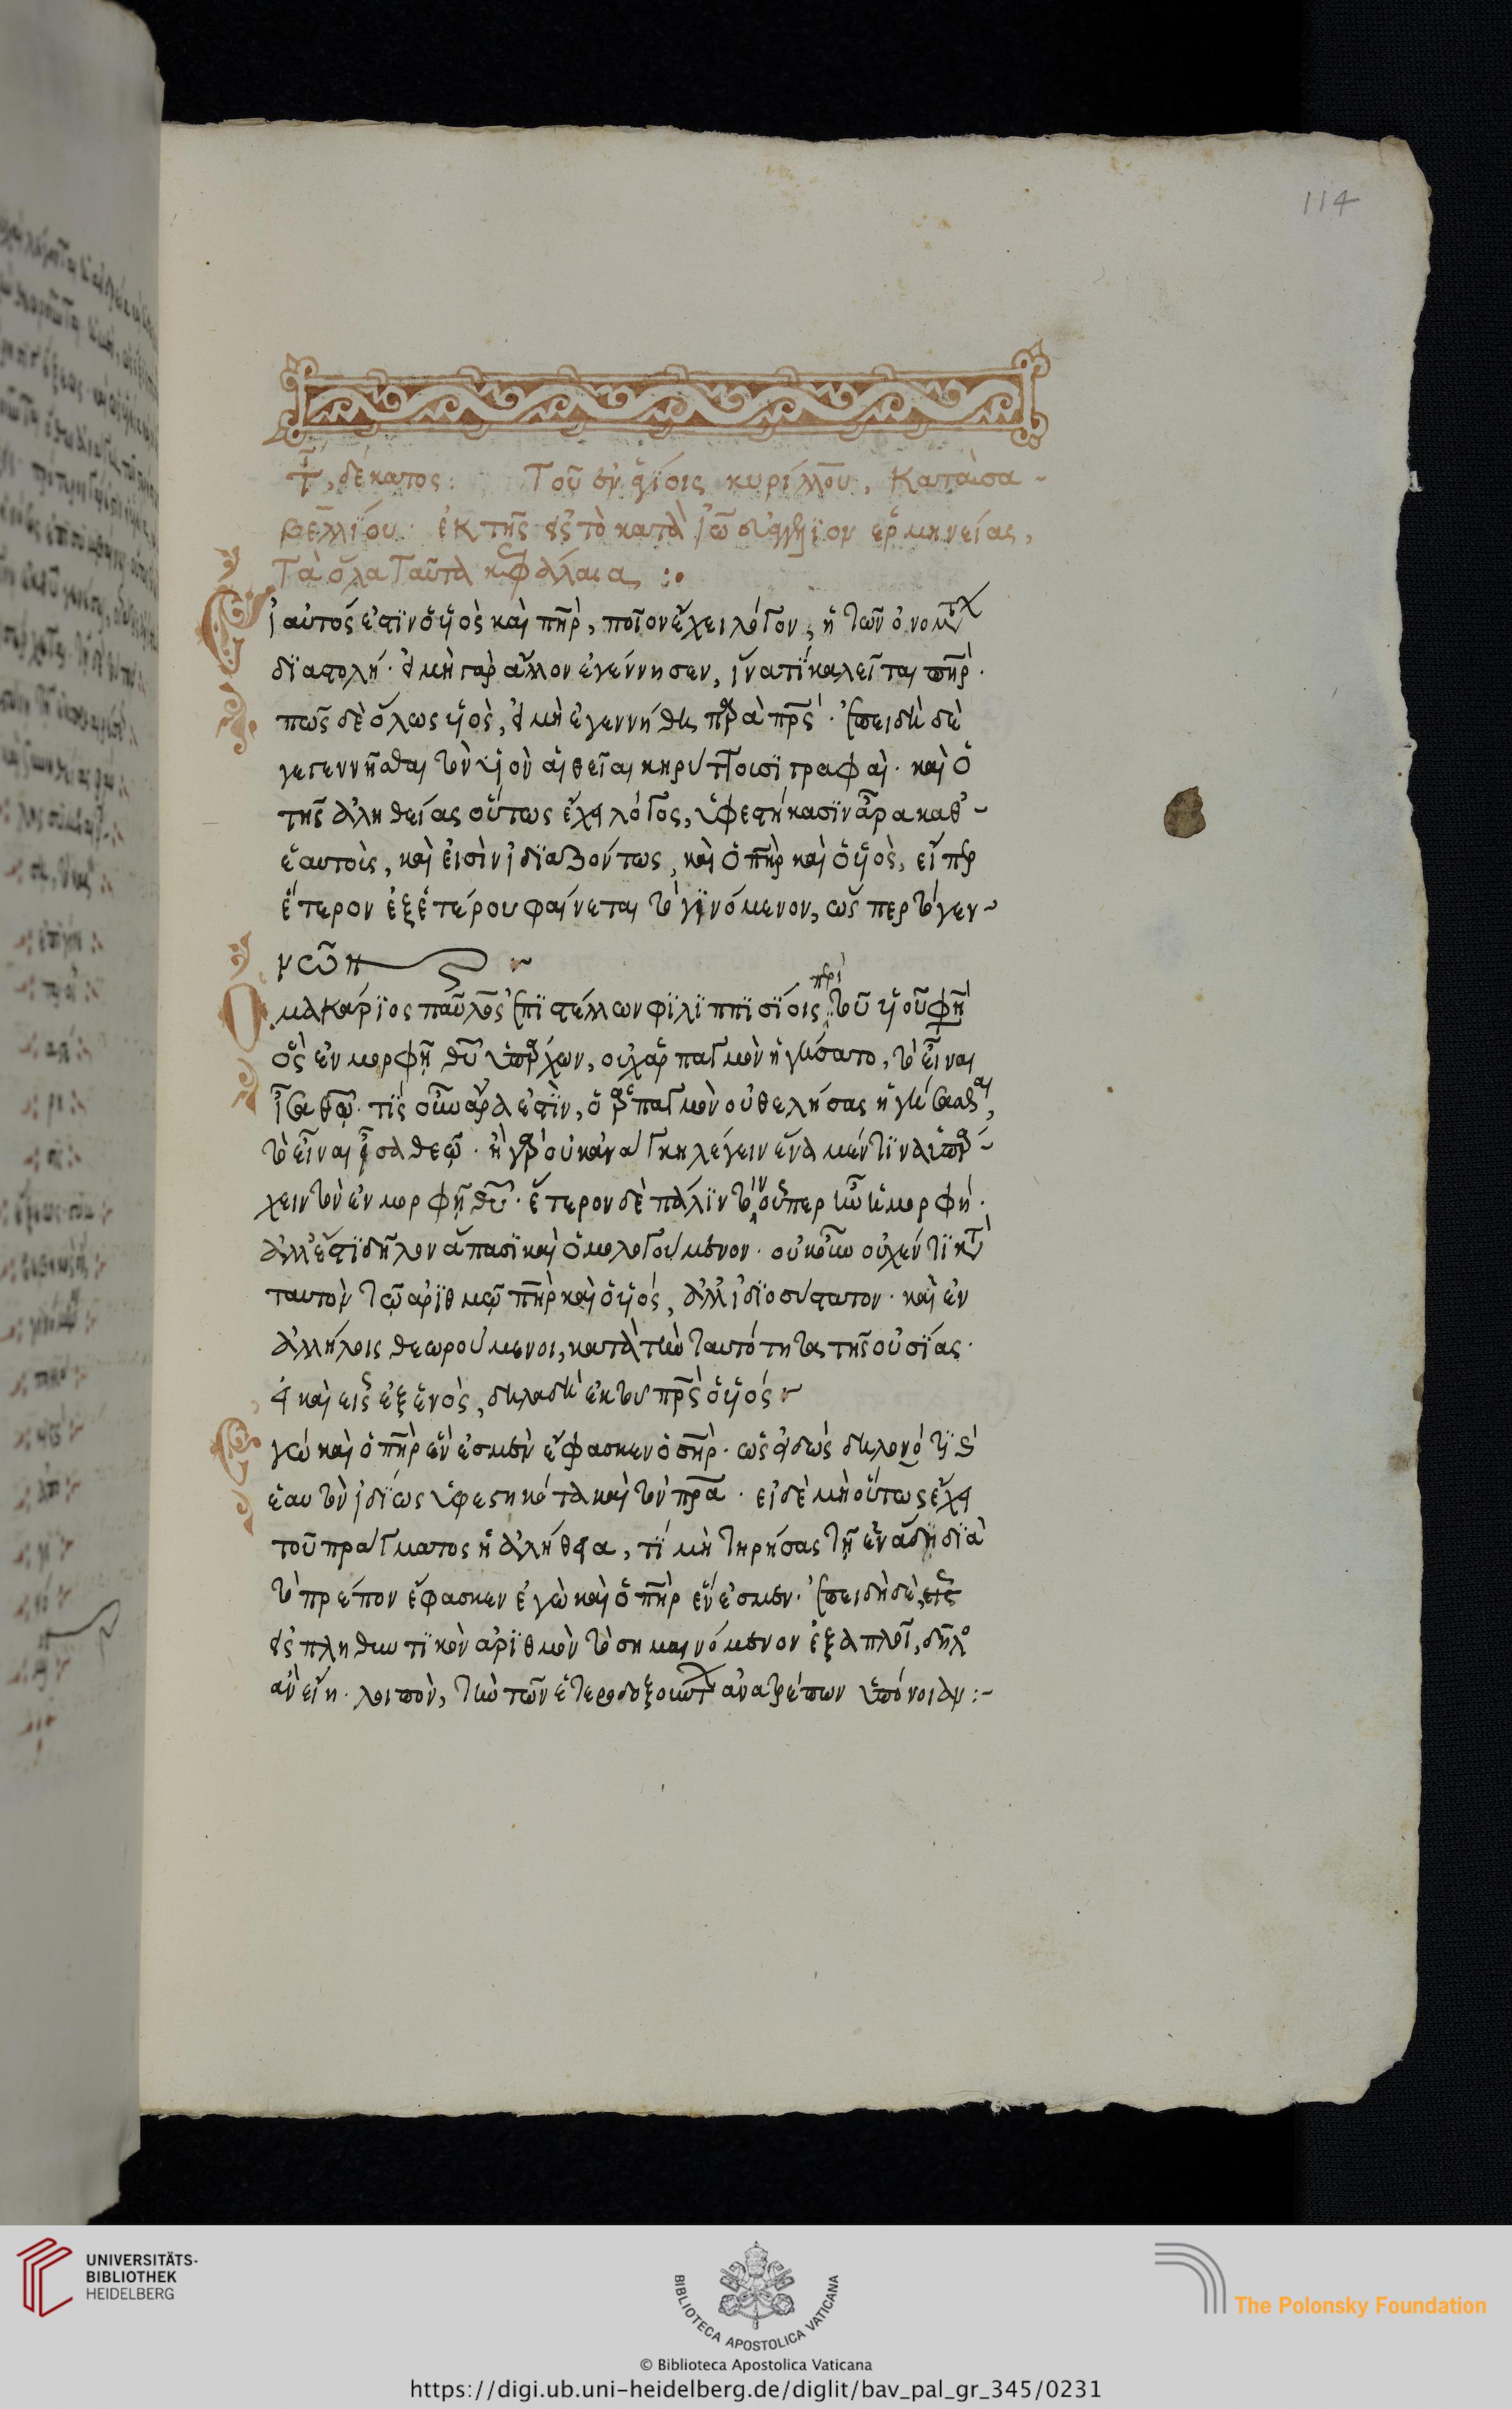 114
δέκατος: Τοῦ ἐν ἁγίοις κυρίλλου, Κατὰ σα-
βελλίου· ἐκ τῆς εἰς τὸ κατὰ ἰω εὐαγγέλϊον ἑρμηνείας,
Τὰ ὅλα Ταῦτα κεφάλαια :·
Εἰ αὐτός ἐστϊν ὁ ϋἱὸς καὶ πῆρ, ποῖον ἔχει λόΓον, ἡ τῶν ὀνομάτων
δϊαστολή· εἰ μὴ γαρ ἄλλον ἐγέννησεν, ἵνατί καλεῖται πῆρ·
πῶς δὲ ὅλως ϋἱὸς, εἰ μὴ ἐγεννήθη παρὰ πρς· Ἐπειδὴ δὲ
γεγεννῆσθαι τὸν ϋἱὸν αἱ θεῖαι κηρύττουσϊ γραφαὶ· καὶ ὁ
τῆς ἀληθείας οὕτως ἔχει λόΓος, ὑφεστήκασϊν ἄρα καθ'-
ἑαυτοὺς, καὶ εἰσὶν ἰδϊαζόντως, καὶ ὁ πὴρ καὶ ὁ ϋἱὸς, εἴπερ
ἕτερον ἐξ ἑτέρου φαίνεται τὸ γϊνόμενον, ὥς περ τὸ γεν-
νῶν
Ὁ μακάρϊος παῦλος ἐπϊστέλλων φϊλϊππϊσϊοις περὶ τοῦ ϋἱοῦ φη
ὃς ἐν μορφῇ θυ ὑπάρχων, οὐχ ἁρπαΓμὸν ἡγήσατο, τὸ εἶναι
ἶσα θῶ· τίς οὖν ἄρα ἐστϊν, ὁ ἁρπαΓμὸν οὐ θελήσας ἡγήσασθαι,
τὸ εἶναι ἶσα θεῶ· ἢ γὰρ οὐκ ἀνάΓκη λέγειν ἕνα μέν τϊνα ὑπάρ-
χειν τὸν ἐν μορφῇ θυ· ἕτερον δὲ πάλϊν τὸν οὗπερ ἦν ἡ μορφή·
ἀλλ' ἔστϊ δῆλον ἅπασϊ καὶ ὁμολοΓούμενον· οὐκοῦν οὐχ ἕν τϊ κ
ταυτὸν τῶ ἀρϊθμῶ πὴρ καὶ ὁ ϋἱός, ἀλλ' ἰδϊοσύστατον· καὶ ἐν
ἀλλήλοις θεωρούμενοι, κατὰ τὴν ταυτότητα τῆς οὐσϊας·
εἰ καὶ εἷς ἐξ ἑνὸς, δηλαδὴ ἐκ τοῦ πρς ὁ ϋἱός
Ἐγὼ καὶ ὁ πὴρ ἕν ἐσμεν ἔφασκεν ὁ σηρ· ὡς εἰδὼς δηλονότϊ
ἑαυτὸν ἰδϊως ὑφεστηκότα καὶ τὸν πρα· εἰ δὲ μὴ οὕτως ἔχει
τοῦ πράΓματος ἡ ἀλήθεια, τϊ μὴ τηρήσας τῇ ἑνάδϊ δϊὰ
τὸ πρέπον ἔφασκεν ἐγὼ καὶ ὁ πὴρ ἕν ἐσμεν· Ἐπειδὴ δὲ,
εἰς πληθυντϊκὸν ἀρϊθμὸν τὸ σημαινόμενον ἐξαπλοῖ, δῆλο
ἂν εἴη· λοιπὸν, τὴν τῶν ἑτεροδοξούντων ἀνατρέπων ὑπόνοιαν :-
UNIVERSITÄTS-
BIBLIOTHEK
HEIDELBERG
BIBLIOTECA APOSTOLICA VATICANA
The Polonsky Foundation
© Biblioteca Apostolica Vaticana
https://digi.ub.uni-heidelberg.de/diglit/bav_pal_gr_345/0231